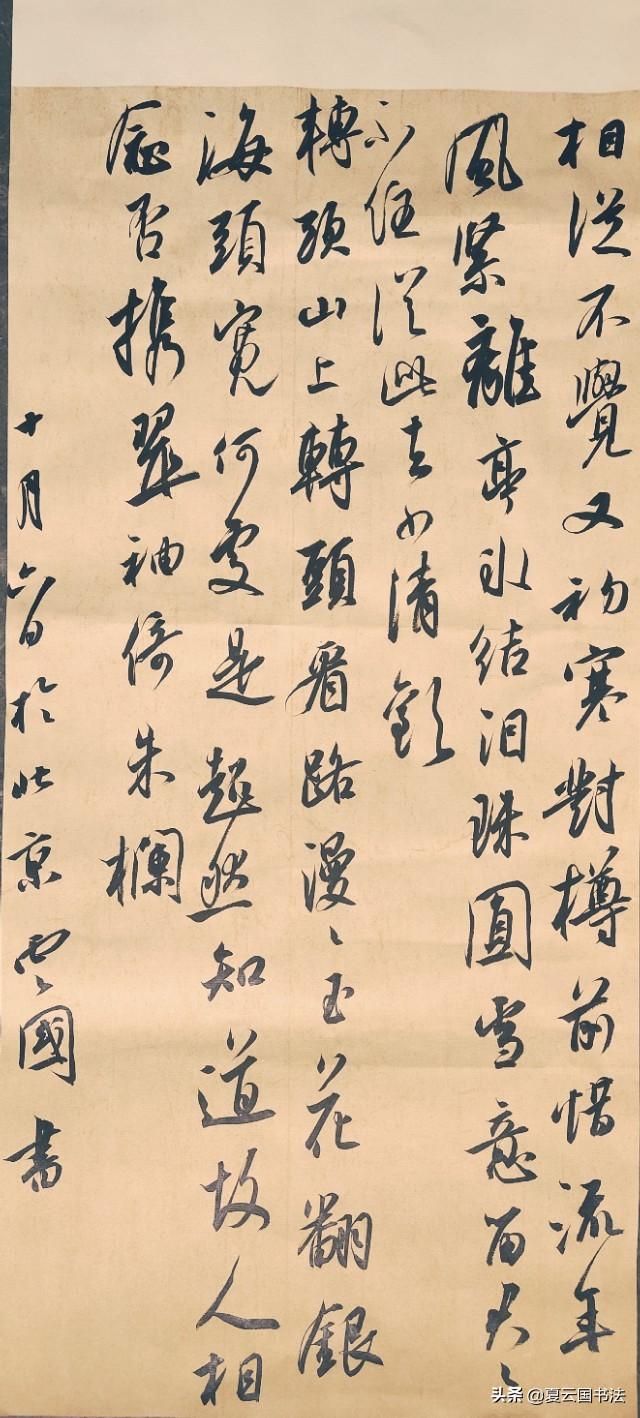 相從不覺又初寒對樽前惜流年
風緊離亭冰結泪珠圓雪意留君々
不住從此去少清歡
轉頭山上轉頭看路漫々玉花翻銀
海頭寬何處是超然知道故人相
念否携翠袖倚朱欄
十月六日於北京雲國書
头条 @夏云国书法